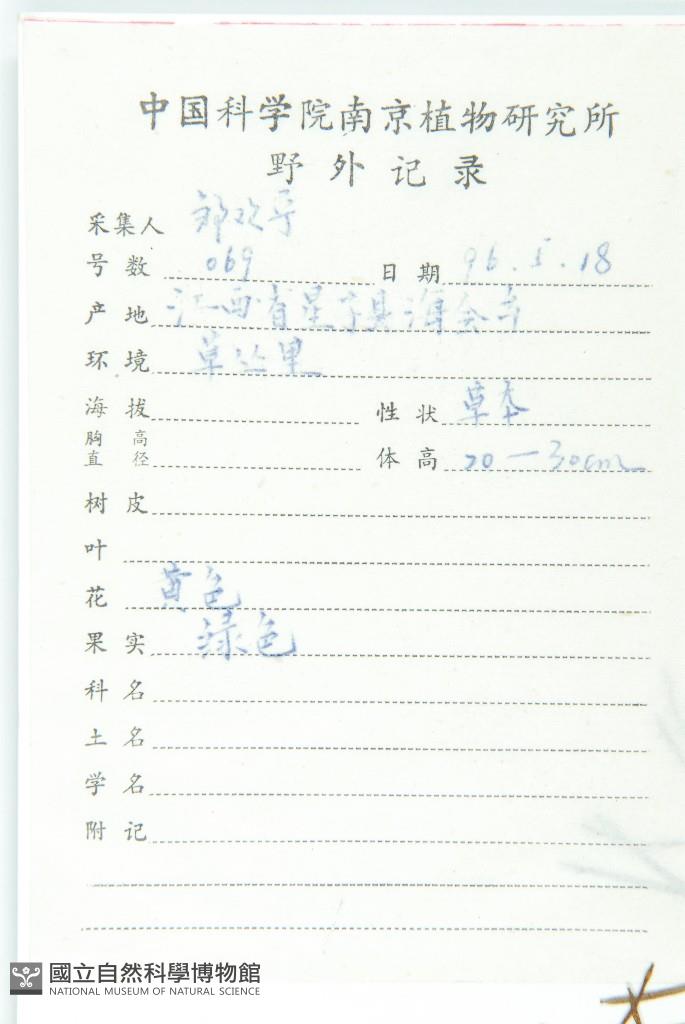 中国科学院南京植物研究所
野外记录
采集人
号数 069 日期 96.5.18
产地 江西省星子县海会乡
环境 草丛里
海拔 性状 草本
胸高直径 体高 20—30cm
树皮
叶
花 黄色
果实 绿色
科名
土名
学名
附记
國立自然科學博物館
NATIONAL MUSEUM OF NATURAL SCIENCE